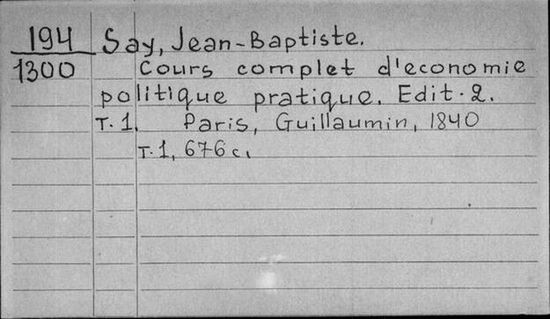 194 Say, Jean-Baptiste.
1300 Cours complet d'economie
politique pratique. Edit. 2.
T. 1. Paris, Guillaumin, 1840
T. 1, 676 c.